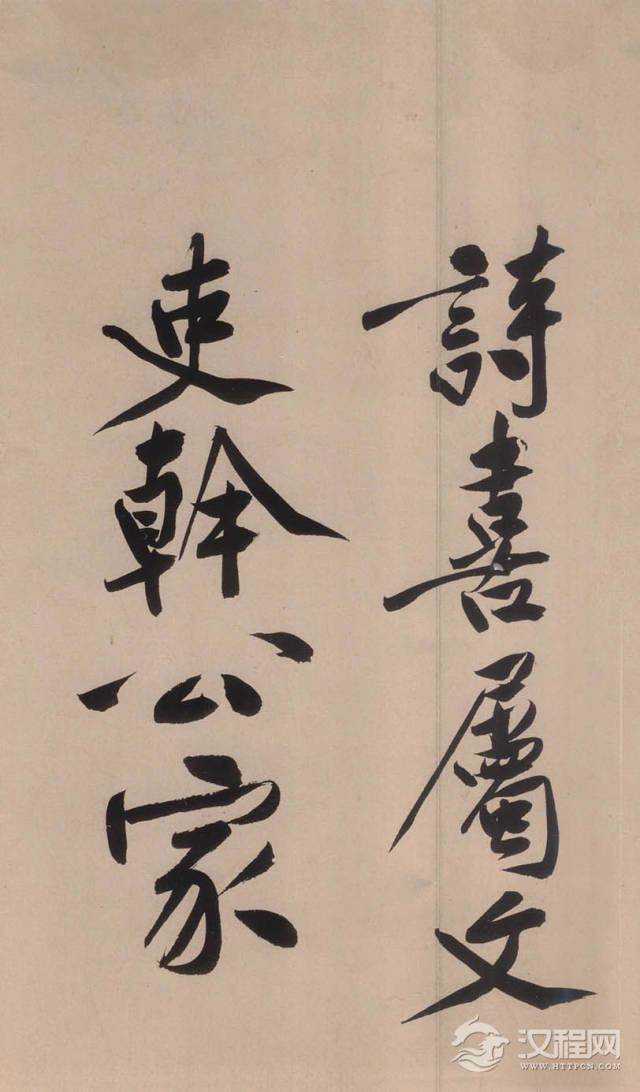 詩喜屬文
吏幹公家
汉程网
WWW.HTTPCN.COM